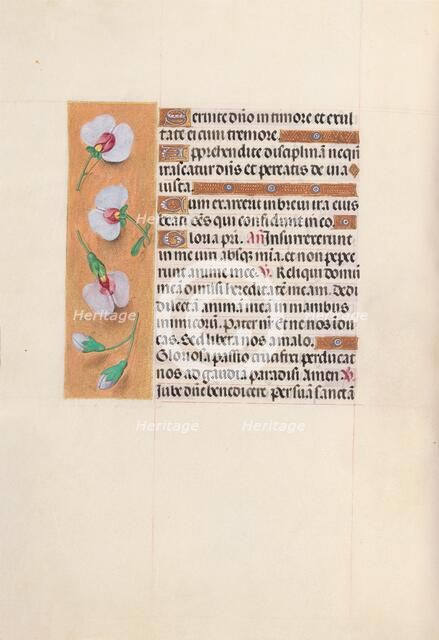 Seruite dño in timore et exul
tate ei cum tremore.
Apprehendite disciplinã nequñ
irascatur dñs et pereatis de uia
iusta.
Cum exarserit in breui ira eius
beati oẽs qui confidunt in eo.
Gloria pri. Añ Insurrexerunt
in me uiri absq mia. et non peper
cerunt anime mee. V. Reliqui domũ
meã dimisi hereditatẽ meam. Dedi
dilectã animã meã in manibus
inimicorũ. Pater nr̃. Et ne nos indu
cas. Sed libera nos a malo.
Gloriosa passio crucifixi perducat
nos ad gaudia paradisi Amen. V
Jube dñe benedicere Per suã sanctã
Heritage Heritage
Heritage Heritage